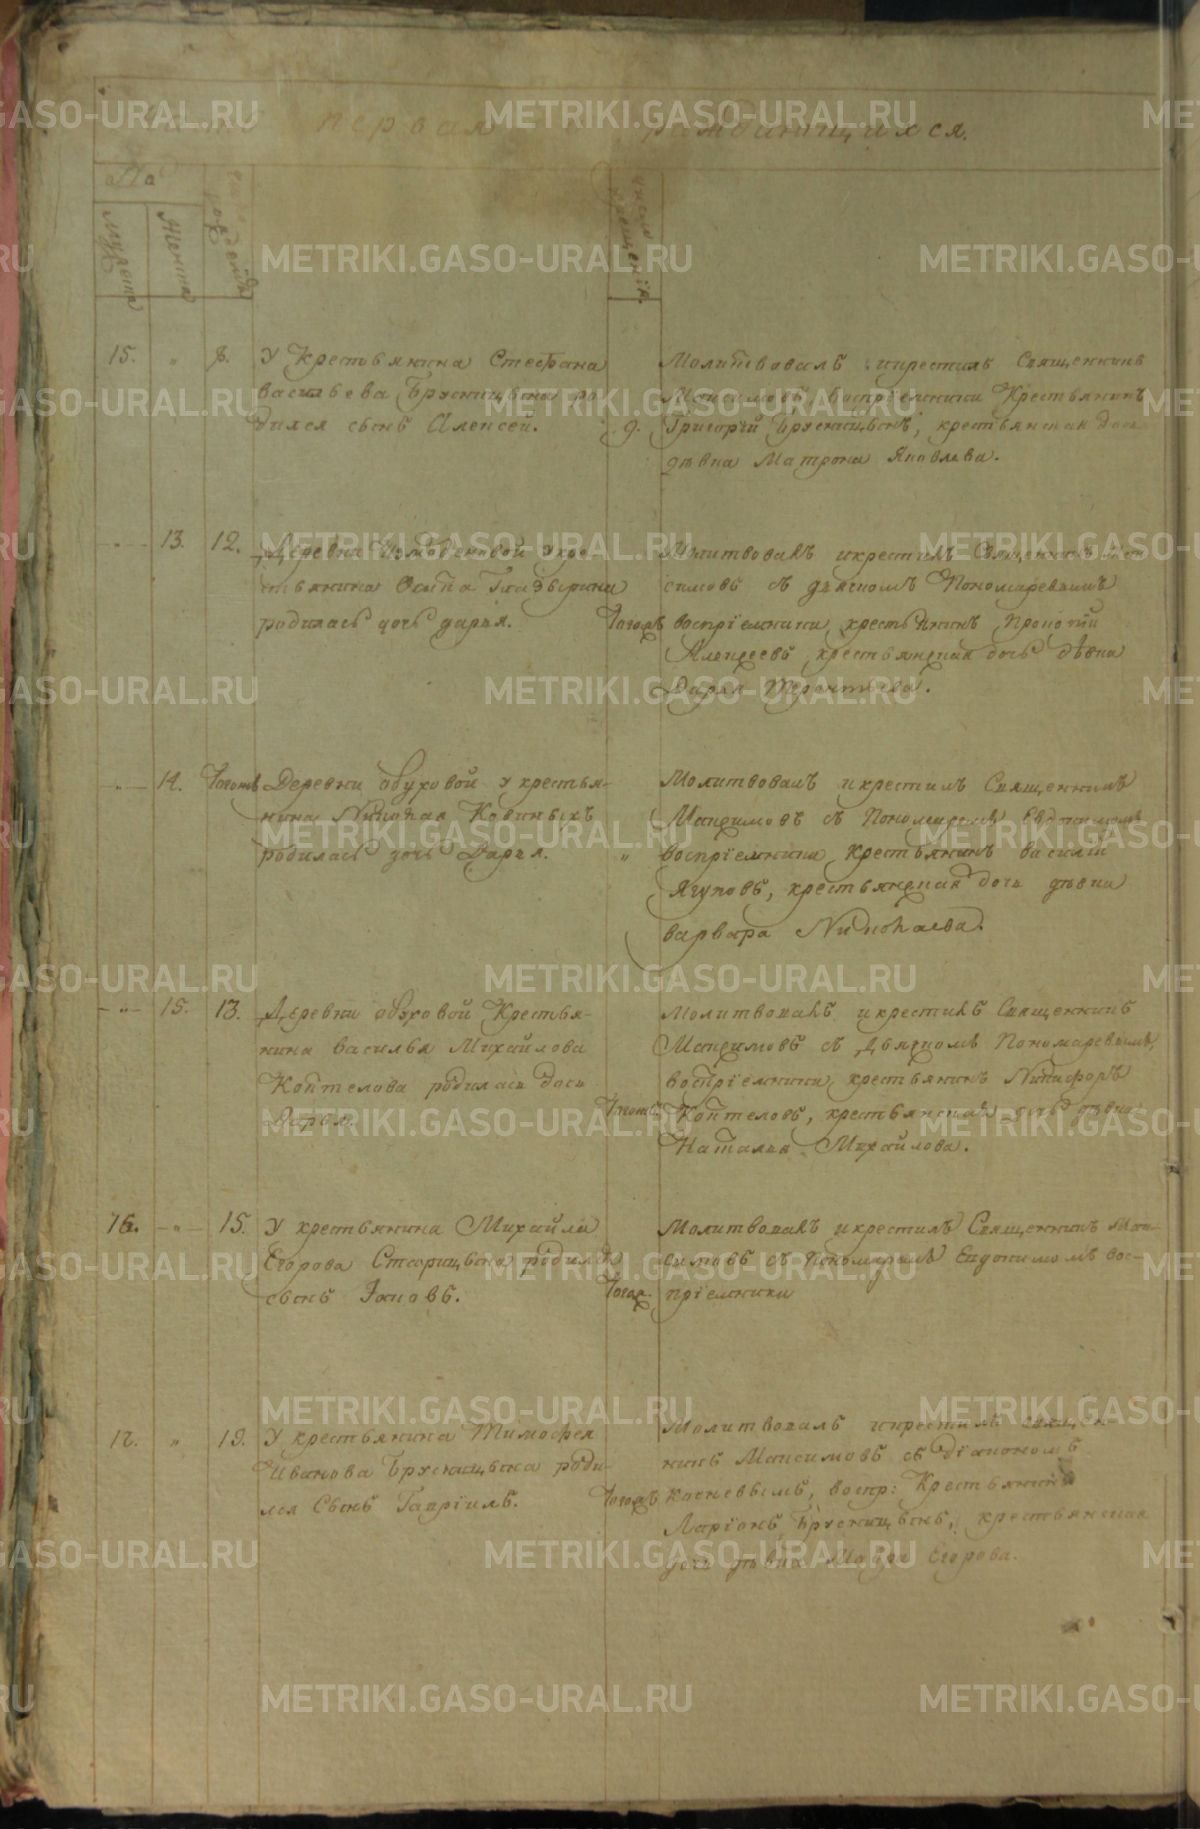 первая раждающихся.
№
Мужска
Женска
рождения
число крещенія.
15. " 8. У Крестьянина Стефана
васильева Брусницына ро
дился сынъ Алексей.
9.
Молитвовалъ икрестилъ Священникъ
Максимовъ, воспріемники Крестьянинъ
Григорій Брусницынъ, крестьянская дочь
дѣвка Матрона Яковлева.
" 13. 12. Деревни укре-
стьянина Осипа
родилась дочь дарья.
Тогожъ
Молитвовалъ икрестилъ Священникъ Мак
симовъ съ дьячкомъ Пономаревымъ
воспріемники, крестьянинъ Прокопій
Алексеевъ крестьянская дочь дѣвка
Дарья Терентьева.
" 14. Тогожъ Деревни обуховой у крестья-
нина Николая Ковиныхъ
родилась дочь Дарья.
"
Молитвовалъ икрестилъ Священникъ
Максимовъ съ Пономаремъ Евдокимомъ
воспріемники, Крестьянинъ василій
Ягуповъ, крестьянская дочь дѣвка
варвара Николаева.
" 15. 13. Деревни обуховой Крестья-
нина василья Михайлова
Коптелова родилась дочь
Дарья.
Тогожъ.
Молитвовалъ икрестилъ Священникъ
Максимовъ съ Дьячкомъ Пономаревымъ,
воспріемники, крестьянинъ Никифоръ
Коптеловъ, крестьянская дочь дѣвка
Наталья Михайлова.
16. " 15. У крестьянина Михайли
Егорова Старицына родился
сынъ Іаковъ.
Тогож.
Молитвовалъ икрестилъ Священникъ Мак-
симовъ съ пономаремъ Евдокимомъ вос-
пріемники
17. " 19. У крестьянина Тимофея
Иванова Брусницына роди-
лся Сынъ Гавріилъ.
Тогожъ
Молитвовалъ икрестилъ священ
никъ Максимовъ съ діакономъ
воспр: Крестьянинъ
Ларіонъ Брусницынъ, крестьянская
дочь дѣвка Мавра Егорова.
METRIKI.GASO-URAL.RU